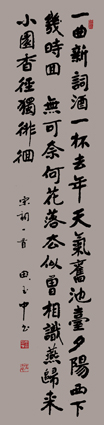 一曲新詞酒一杯去年天氣舊池臺夕陽西下
幾時回 無可奈何花落去似曾相識燕歸來
小園香徑獨徘徊
宋詞一首